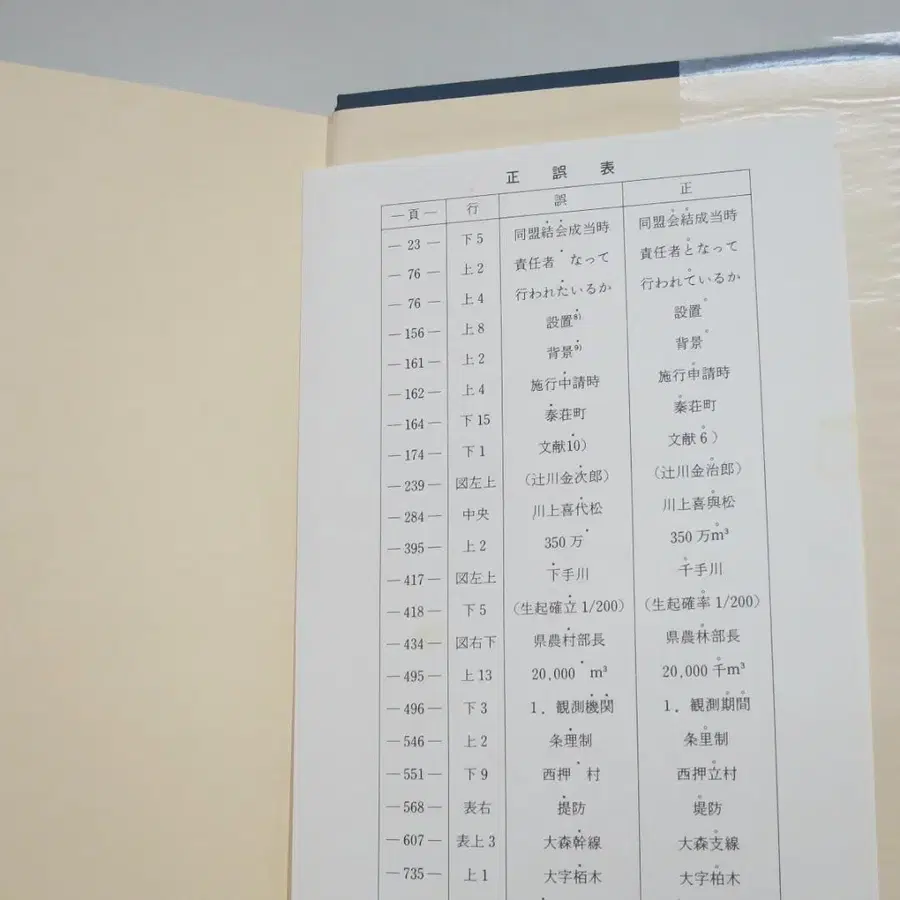 正誤表
―頁― 行 誤 正
― 23 ― 下5 同盟結会成当時 同盟会結成当時
― 76 ― 上2 責任者 なって 責任者となって
― 76 ― 上4 行われたいるか 行われているか
―156― 上8 設置⁸⁾ 設置
―161― 上2 背景⁹⁾ 背景
―162― 上4 施行中請時 施行申請時
―164― 下15 泰荘町 秦荘町
―174― 下1 文献10) 文献6)
―239― 図左上 (辻川金次郎) (辻川金治郎)
―284― 中央 川上喜代松 川上喜與松
―395― 上2 350万 350万m³
―417― 図左上 下手川 千手川
―418― 下5 (生起確立1/200) (生起確率1/200)
―434― 図右下 県農村部長 県農林部長
―495― 上13 20,000 m³ 20,000千m³
―496― 下3 1.観測機関 1.観測期間
―546― 上2 条理制 条里制
―551― 下9 西押 村 西押立村
―568― 表右 提防 堤防
―607― 表上3 大森幹線 大森支線
―735― 上1 大字栢木 大字柏木